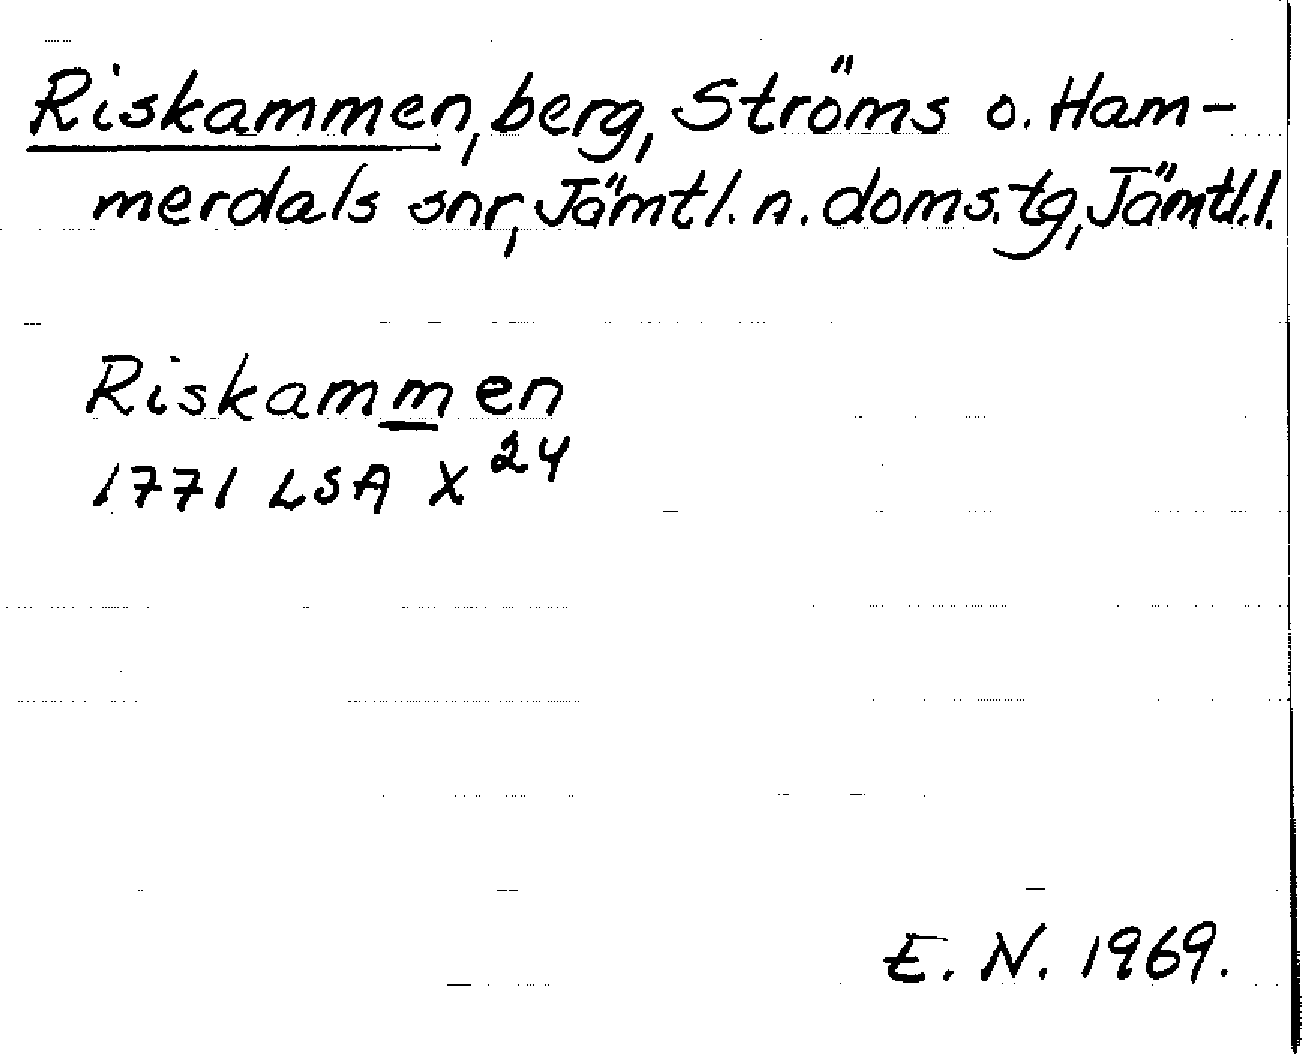 Riskammen, berg, Ströms o. Ham-
merdals snr, Jämtl. n. doms.tg, Jämtl.l.
Riskammen
1771 LSA X 24
E. N. 1969.